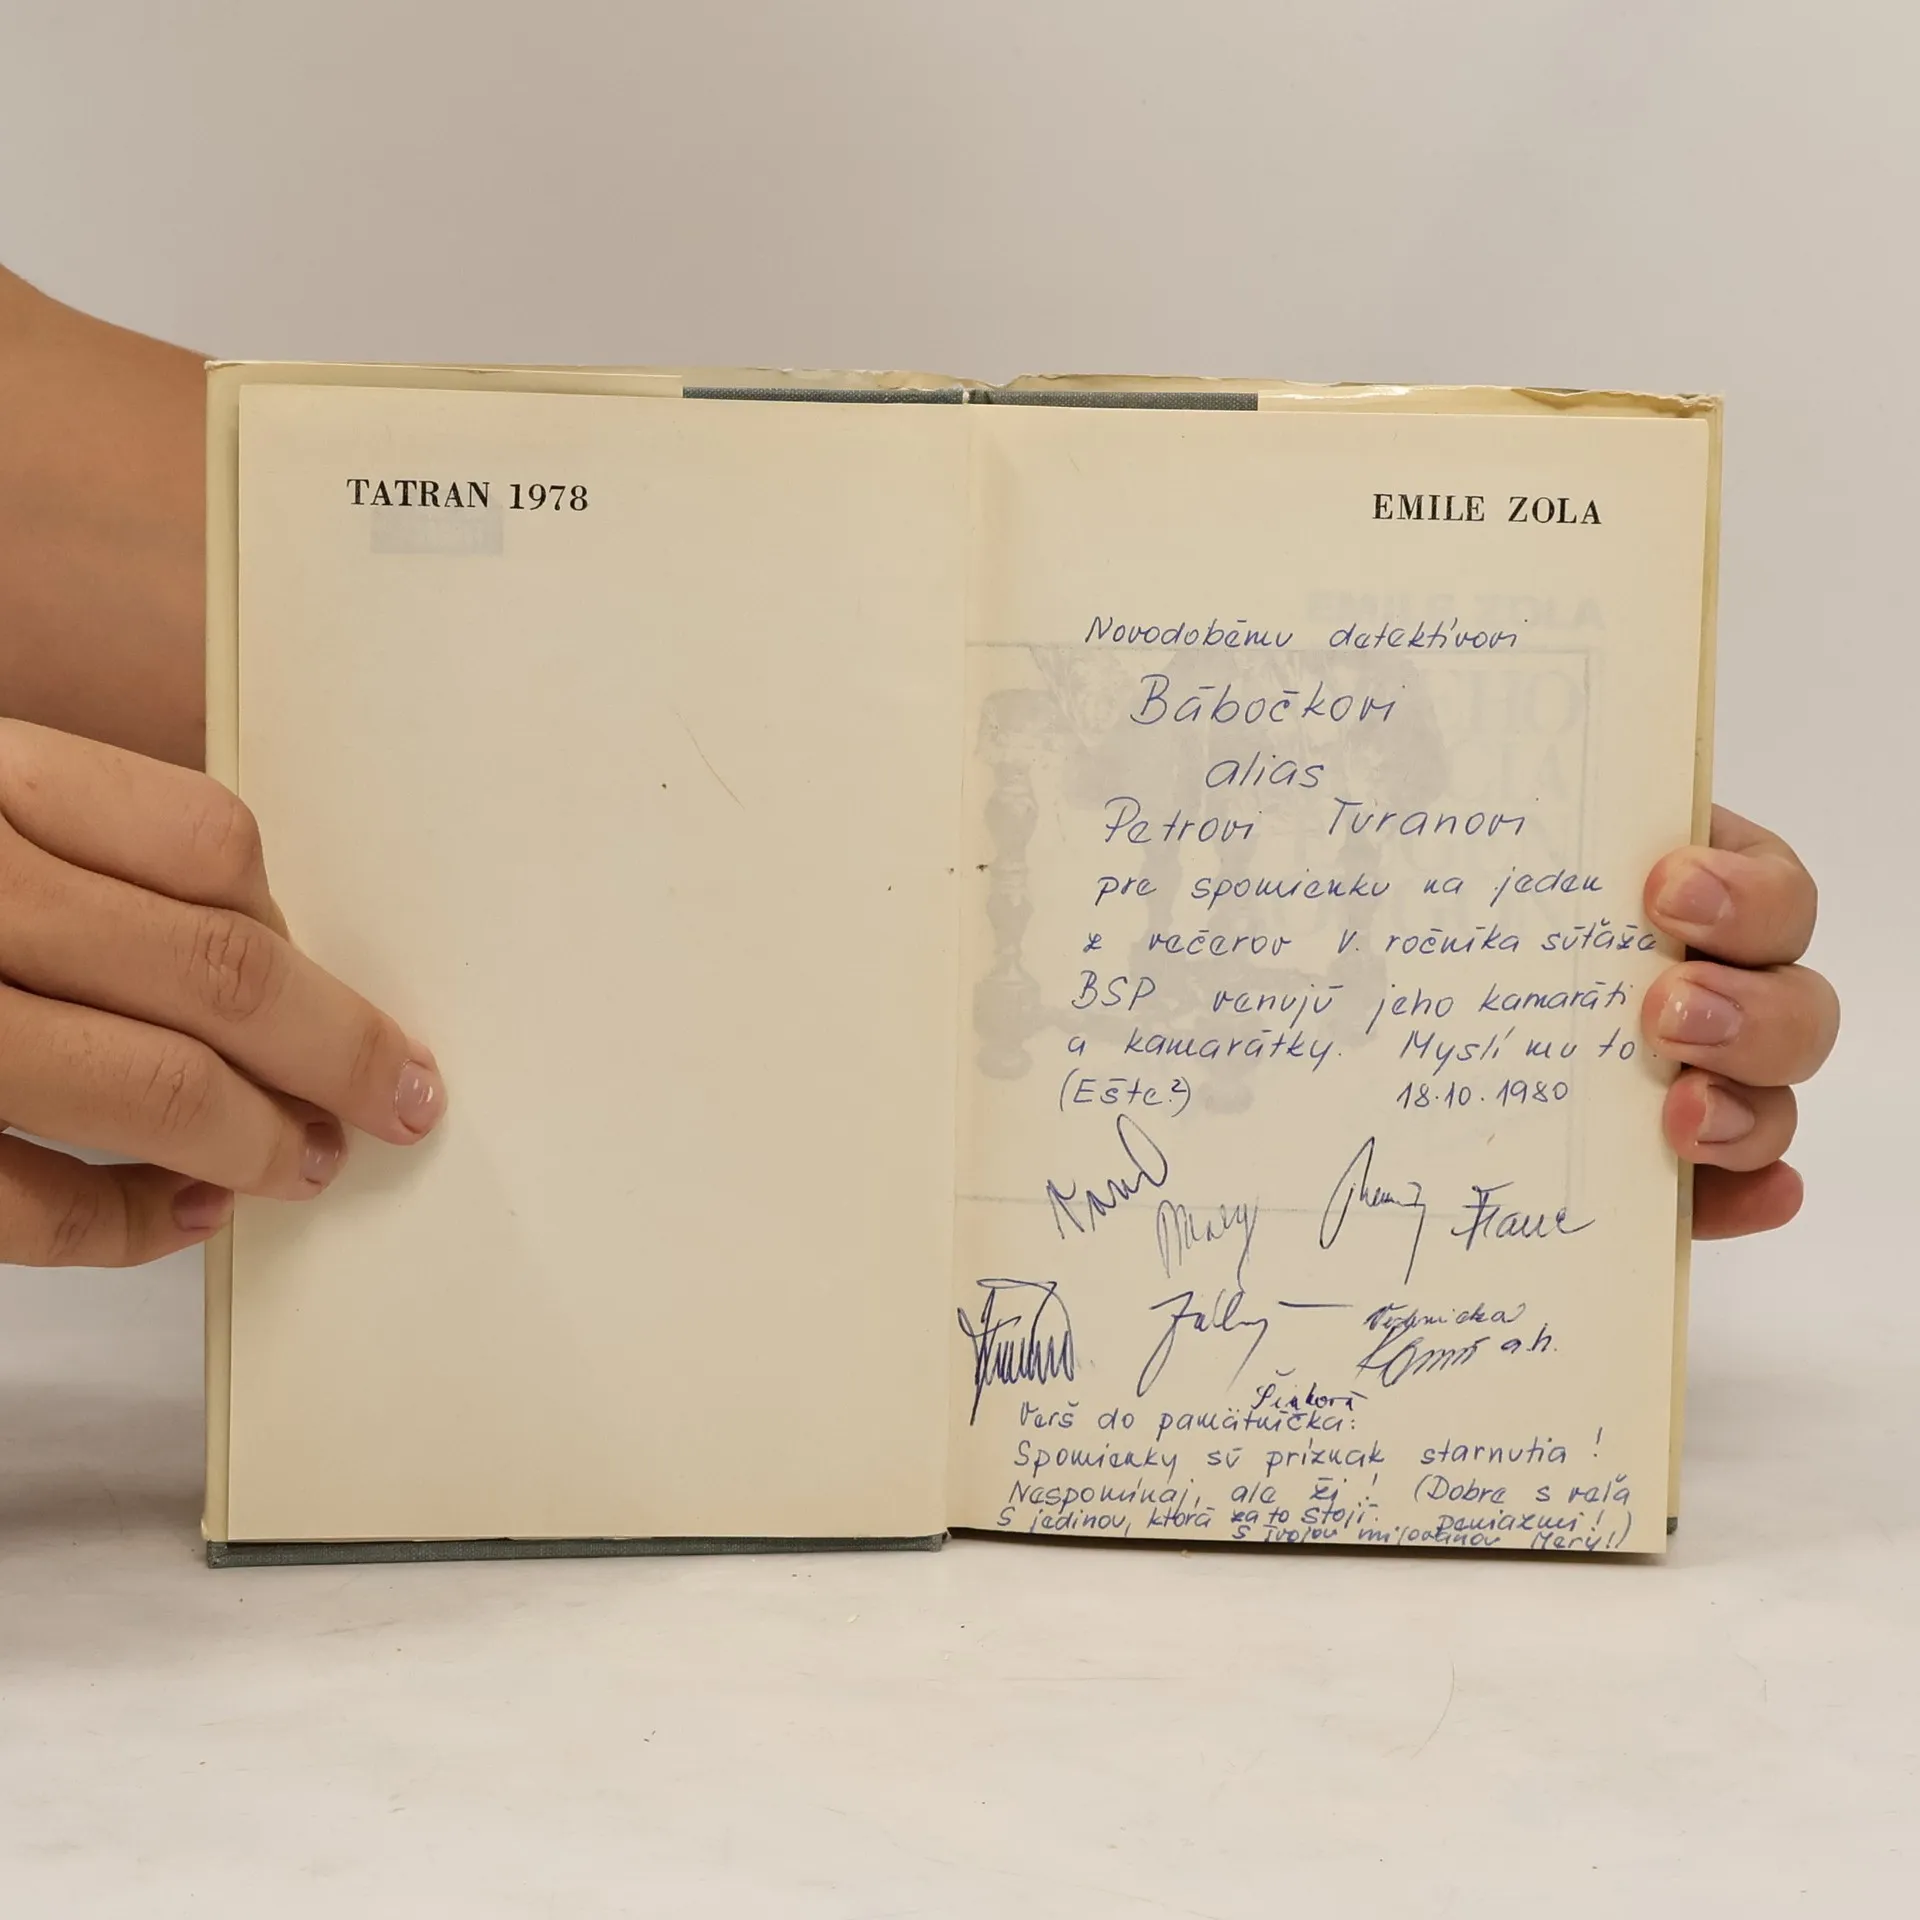 TATRAN 1978
EMILE ZOLA
Novodobému detektívovi
Bábočkovi
alias
Petrovi Turanovi
pre spomienku na jeden
z večerov V. ročníka súťaže
BSP venujú jeho kamaráti
a kamarátky. Myslí mu to.
(Ešte?) 18.10.1980
Mery
Veronicka
a.h.
Verš do pamätníčka:
Spomienky sú príznak starnutia!
Nespomínaj, ale ži! (Dobre s veľa
S jedinou, ktorá za to stojí. peniazmi!)
S tvojou milovanou Mery!)